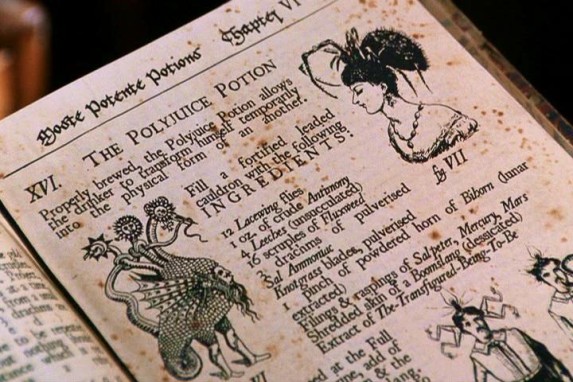 Moste Potente Potions Chapter VI
XVI. THE POLYJUICE POTION
Properly brewed, the Polyjuice Potion allows
the drinker to transform himself temporarily
into the physical form of another.
Fill a fortified leaded
cauldron with the following
INGREDIENTS:
12 Lacewing flies
1 oz of crude Antimony
4 Leeches (unsucculated)
16 scruples of Fluxweed
3 drachms of pulverised
Sal Ammoniac
Knotgrass blades, pulverised
1 pinch of powdered horn of Bicorn (lunar
extracted)
Filings & raspings of Salpeter, Mercury, Mars
Shredded skin of a Boomslang (desiccated)
Extract of The-Transfigured-Being-To-Be
fig VII
at the Full
add of
& the